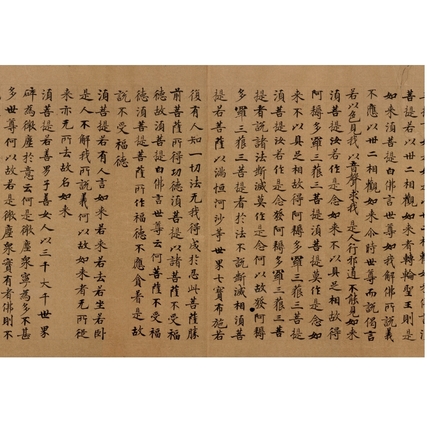 菩提若以丗二相觀如來者轉輪聖王則是
如來須菩提白佛言世尊如我解佛所說義
不應以丗二相觀如來尒時世尊而說偈言
若以色見我以音聲求我是人行邪道不能見如來
須菩提汝若作是念如來不以具足相故得
阿耨多羅三藐三菩提須菩提莫作是念如
來不以具足相故得阿耨多羅三藐三菩提
須菩提汝若作是念發阿耨多羅三藐三菩
提者說諸法斷滅莫作是念何以故發阿耨
多羅三藐三菩提者於法不說斷滅相須菩
提若菩薩以滿恒河沙等世界七寶布施若
復有人知一切法无我得成於忍此菩薩勝
前菩薩所得功德須菩提以諸菩薩不受福
德故須菩提白佛言世尊云何菩薩不受福
德須菩提菩薩所作福德不應貪著是故
說不受福德
須菩提若有人言如來若來若去若坐若卧
是人不解我所說義何以故如來者无所從
來亦无所去故名如來
須菩提若善男子善女人以三千大千世界
碎為微塵於意云何是微塵眾寧為多不甚
多世尊何以故若是微塵眾實有者佛則不